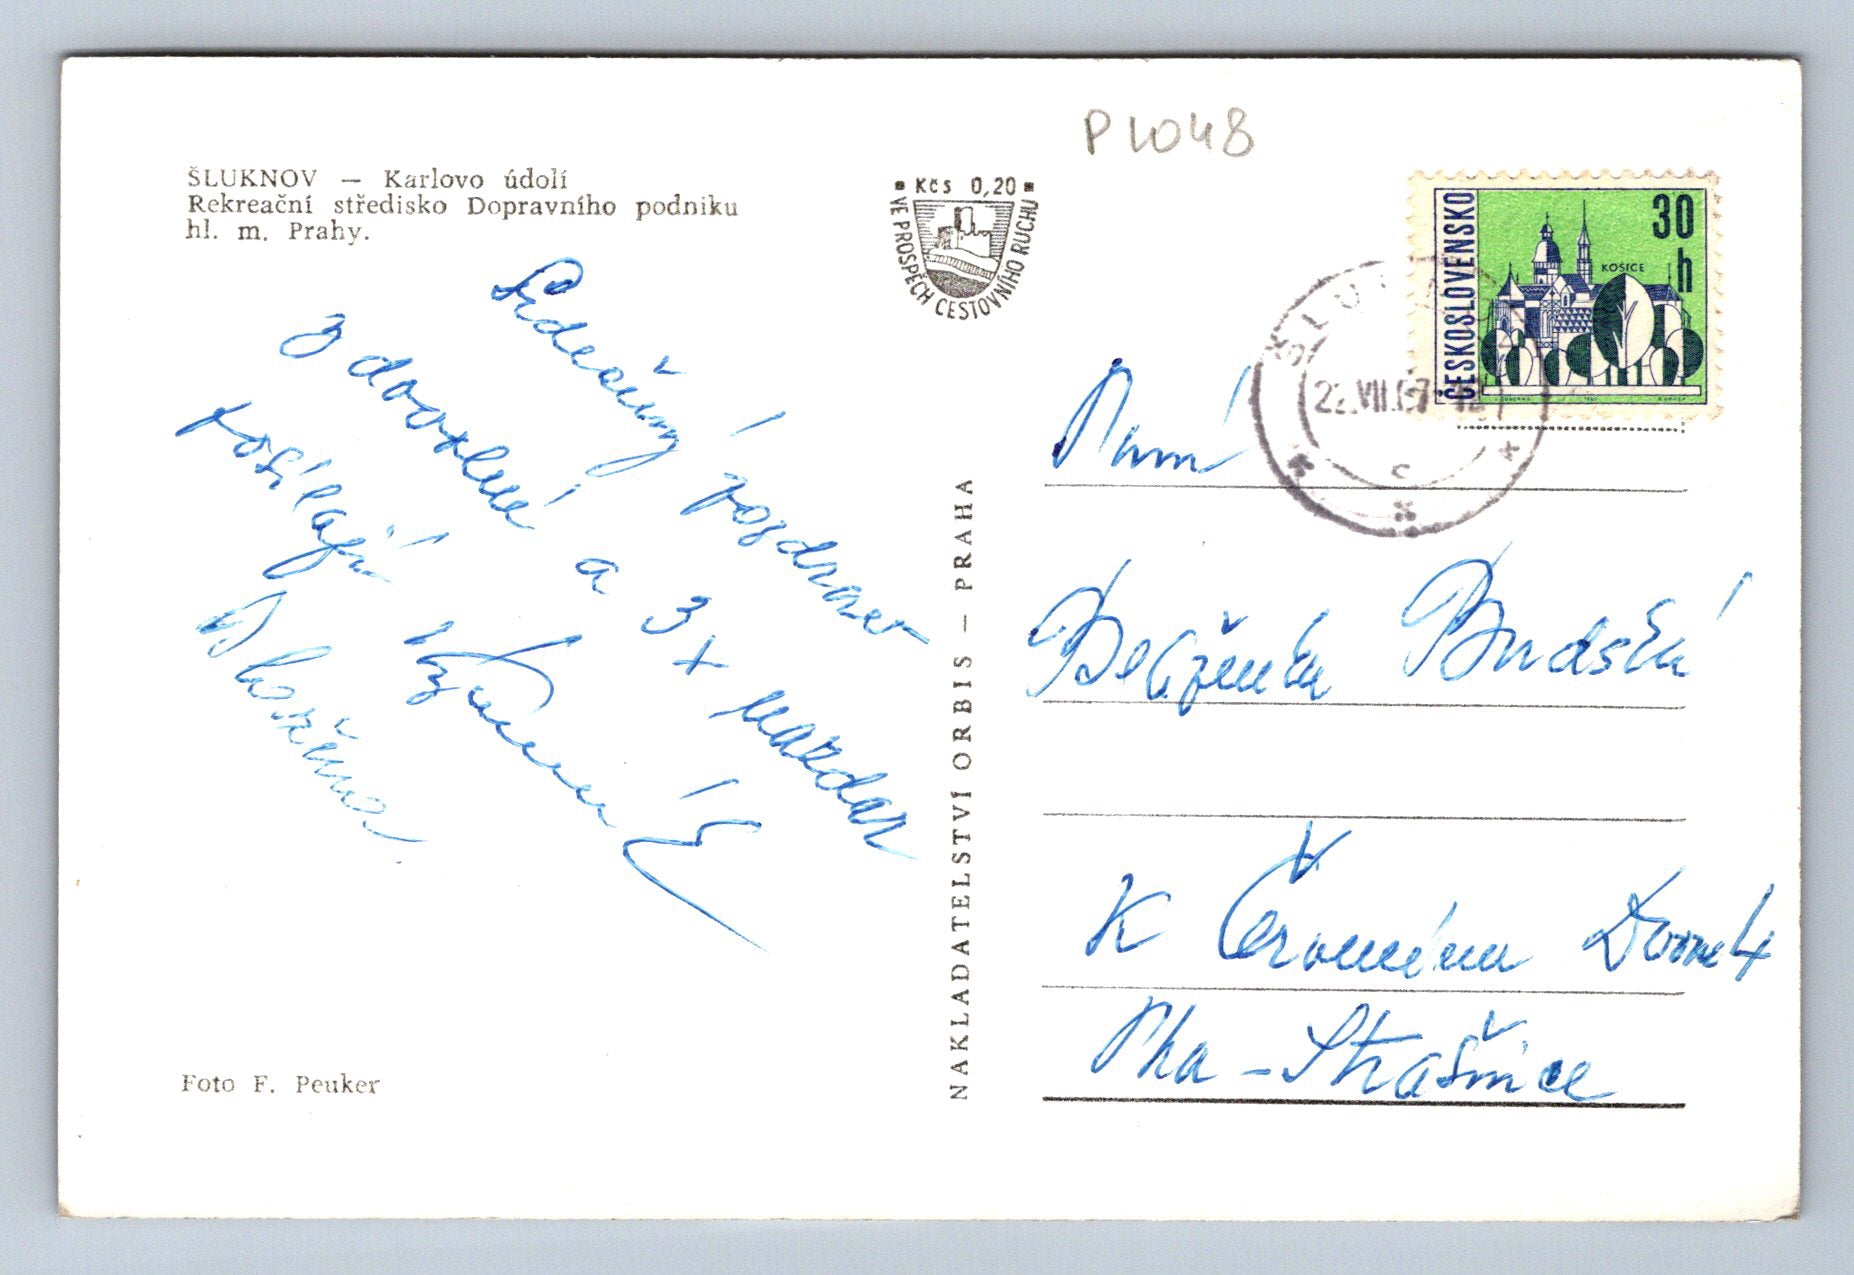 P1048
ŠLUKNOV — Karlovo údolí
Rekreační středisko Dopravního podniku
hl. m. Prahy.
Kčs 0,20
VE PROSPĚCH CESTOVNÍHO RUCHU
ČESKOSLOVENSKO
30 h
KOŠICE
Srdečný pozdrav
z dovolené a 3x nazdar
posílají
Paní
Budská
K Červenému Dvoru 4
Pha - Strašnice
NAKLADATELSTVÍ ORBIS — PRAHA
Foto F. Peuker